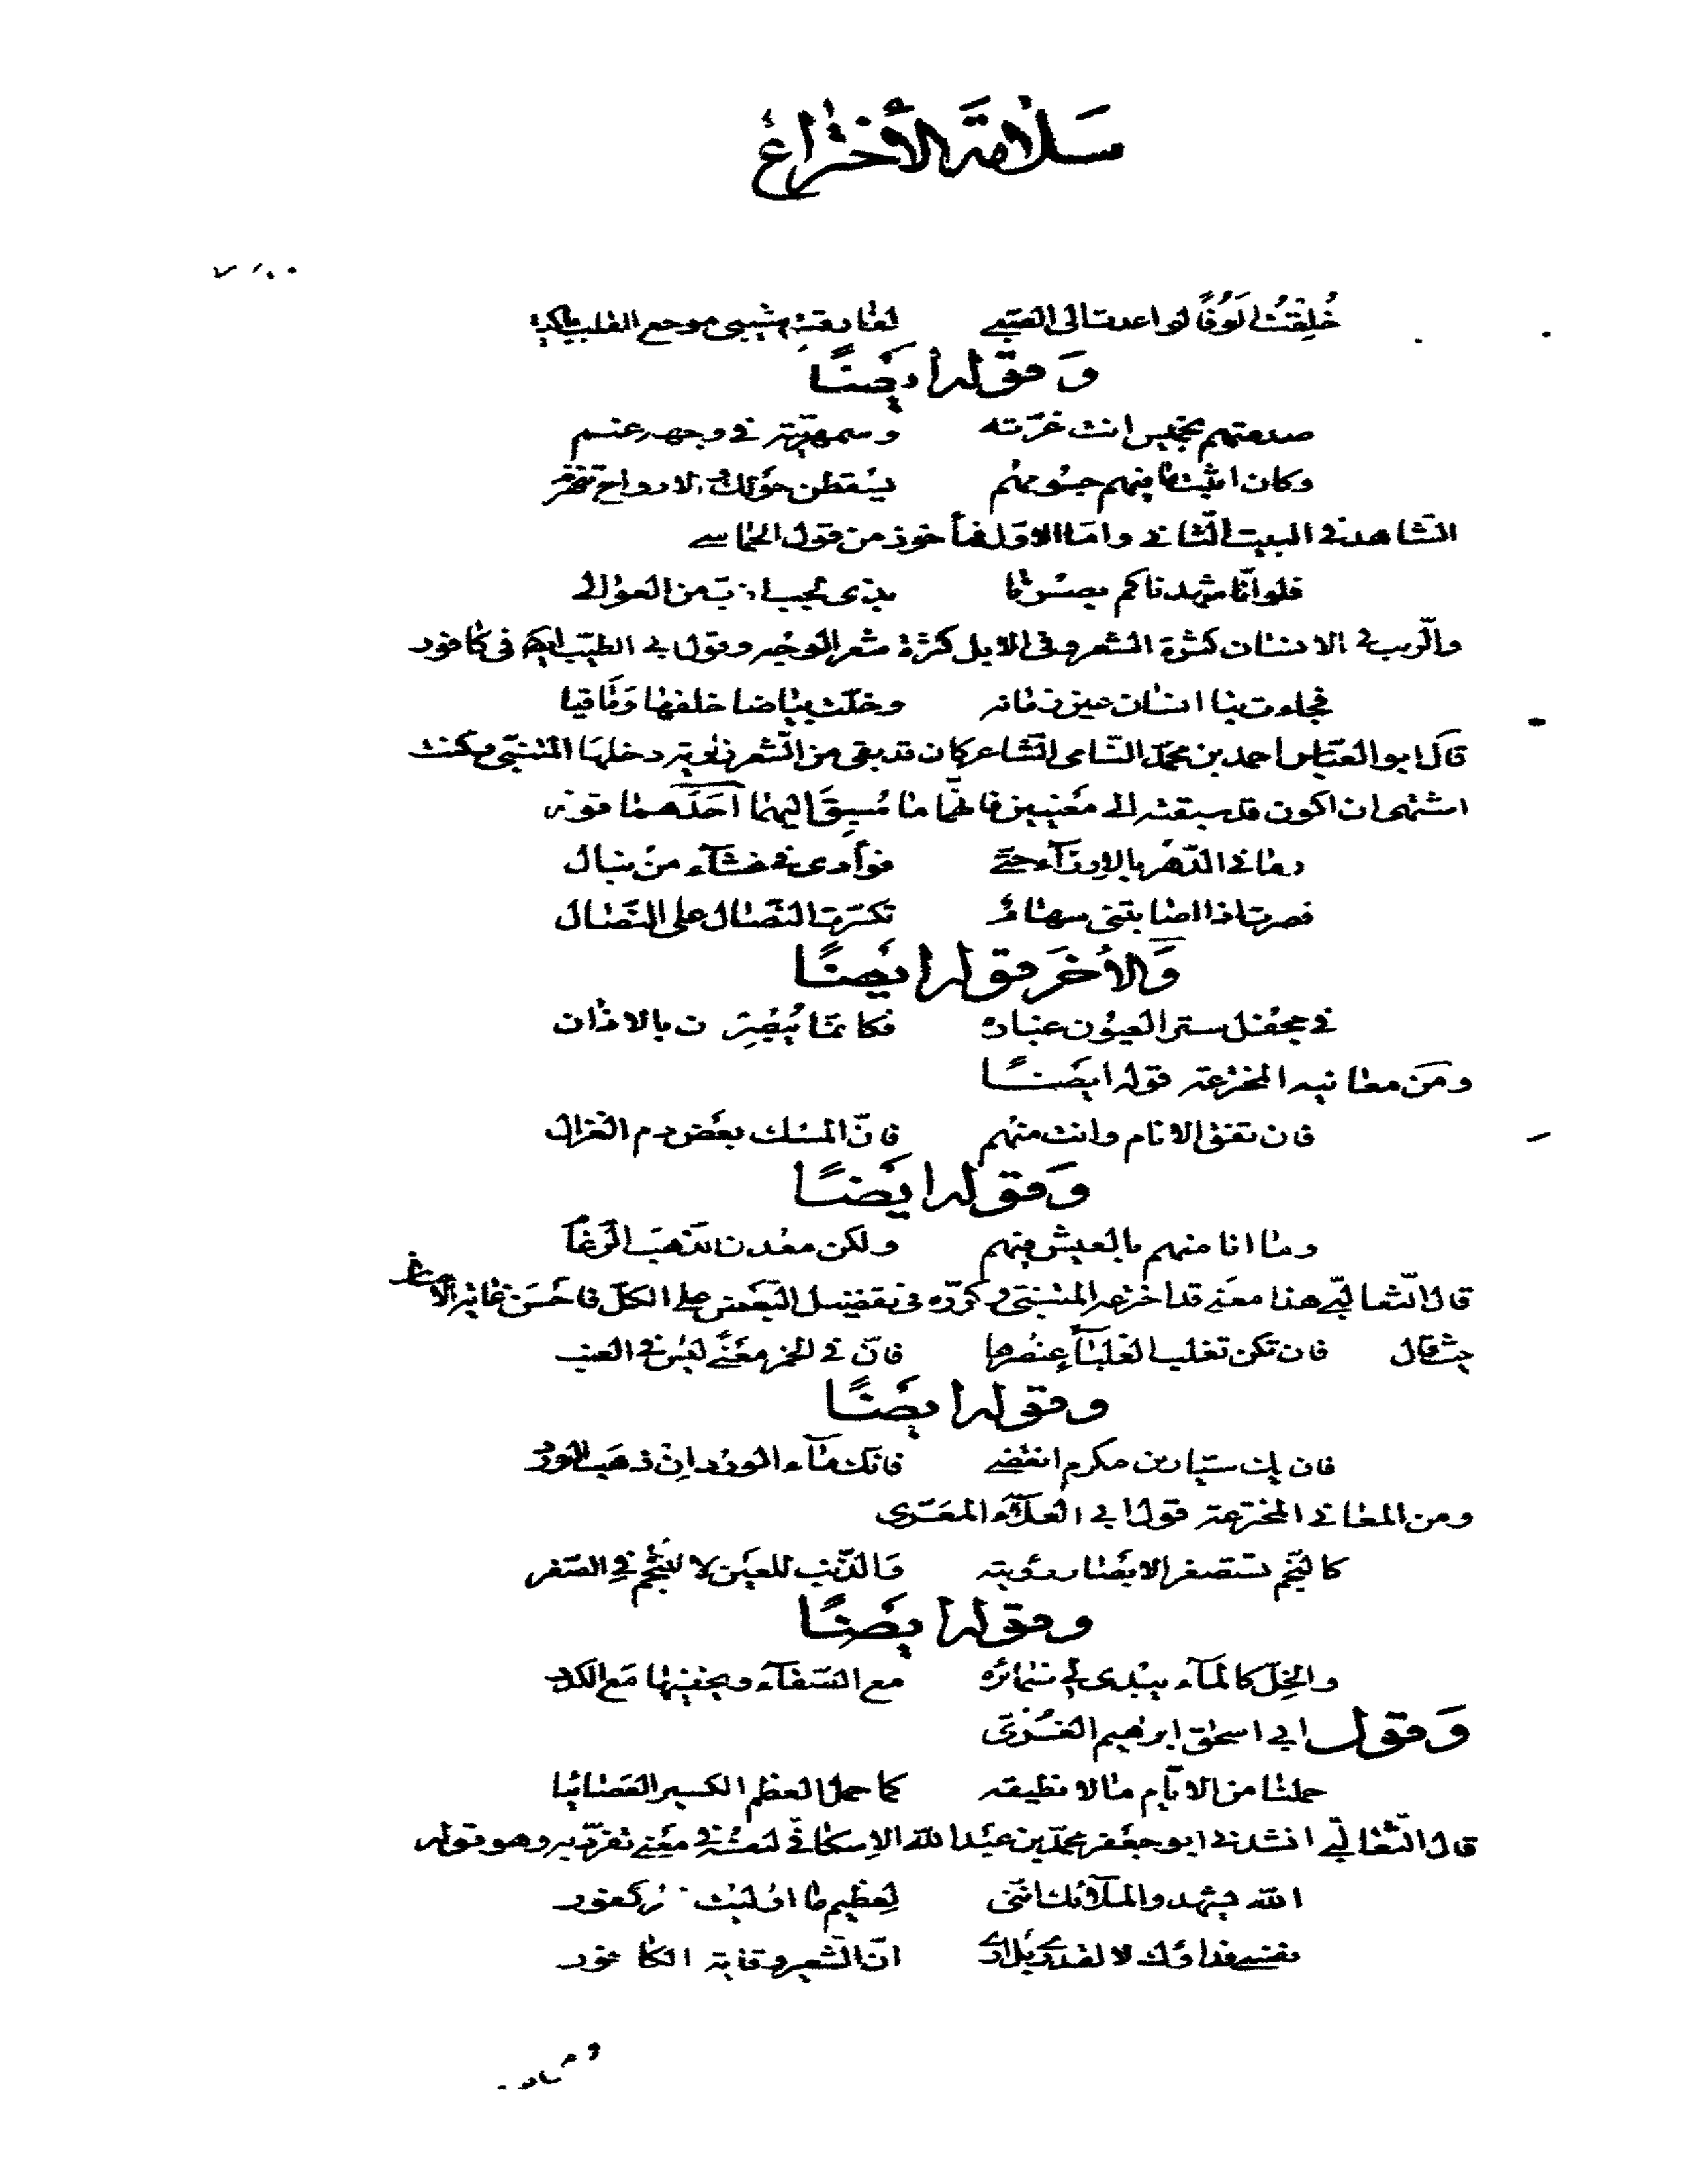 سَلامَة الأختراع
خُلِقْتُ اَلوُفًا لو اعدت الى الصبى لفارقت شيبى موجع القلب باكيا
وَقوله ايضًا
صدمتهم بخميس انت غرّته وسمهريّته فى وجهه غمم
وكان اثبت ما فيهم جسومهم يسقطن حولك والارواح تنهزم
الشّاهد فى البيت الثّانى وامّا الاوّل فمأخوذ من قول الحماسى
فلو انّا شهدناكم نصرنا بذى لجب ازبّ من العوالى
والزّبب فى الانسان كثرة الشعر وفى الابل كثرة شعر الوجه وقول ابى الطيّب ايضا فى كافور
فجاءت بنا انسان عين زمانه وخلّت بياضا خلفها وَمآقيا
قال ابو العبّاس احمد بن محمّد النّامى الشّاعر كان قد بقى من الشّعر زاوية دخلها المتنبّى وكنت
اشتهى ان اكون قد سبقته الى معَنيين قالهما ما سُبِقَ اليهما اَحَدَهما قوله
رمانى الدّهر بالارزآء حتّى فؤادى فى غشآء من نبال
فصرت اذا اصابتنى سهام تكسّرت النّصال على النّصال
وَالأخَر قوله ايضًا
فى جحفل ستر العيون غباره فكانّما يُبْصِرن بالاذان
ومَن معانيه المخترعة قوله ايضًا
فان تفق الانام وانت منهم فانّ المسك بعض دم الغزال
وَقوله ايضًا
وما انا منهم بالعيش فيهم ولكن معدن الذّهب الرّغام
قال الثّعالبّى هذا معنى قد اخترعه المتنبّى وكرّره فى تفضيل البعض على الكلّ فاحسَن غاية الاحسان
حيث قال فان تكن تغلب الغلبآء عنصرها فانّ فى الخمر معنًى ليس فى العنب
وقوله ايضًا
فان يك سيّار بن مكرم انقضى فانّك مآء الورد اِن ذهَب الورد
ومن المعانى المخترعة قول ابى العلآء المعَرّى
كالنّجم تستصغر الابصار رؤيته وَالذّنب للعين لا للنّجم فى الصّغر
وقوله ايضًا
والخِلّ كالمآء يبدى لى ضمائره مع الصّفآء ويخفيها مَع الكدر
وَقول ابى اسحق ابرهيم الغَزّىّ
حملنا من الايّام ما لا نطيقه كما حمل العظم الكسير العصائبا
قال الثّعالبّى انشدنى ابو جعفر محمّد بن عبد الله الاسكافى لنفسه فى معنى تفرّد به وهو قوله
الله يشهد والملآئك انّنى لعظيم ما اوليت كفور
نفسى فداؤك لا لقدرى بل ارى انّ الشّعير وقاية الكافور